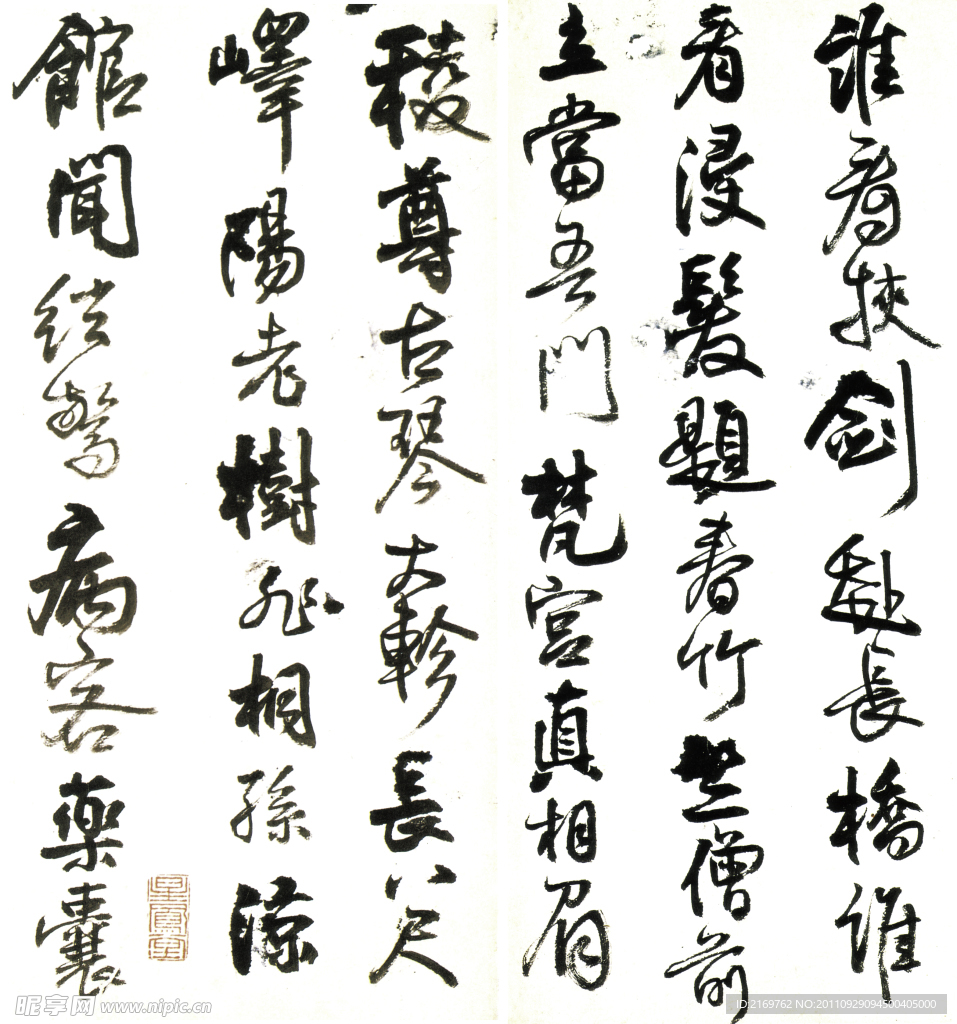 誰看挾劍赴長橋誰
看浸髮題春竹竺僧前
立當吾門梵宮真相眉
稜尊古琴大軫長八尺
嶧陽老樹非桐孫涼
館聞絃驚病客藥囊
昵享网 www.nipic.cn
ID:2169762 NO:20110929094500405000